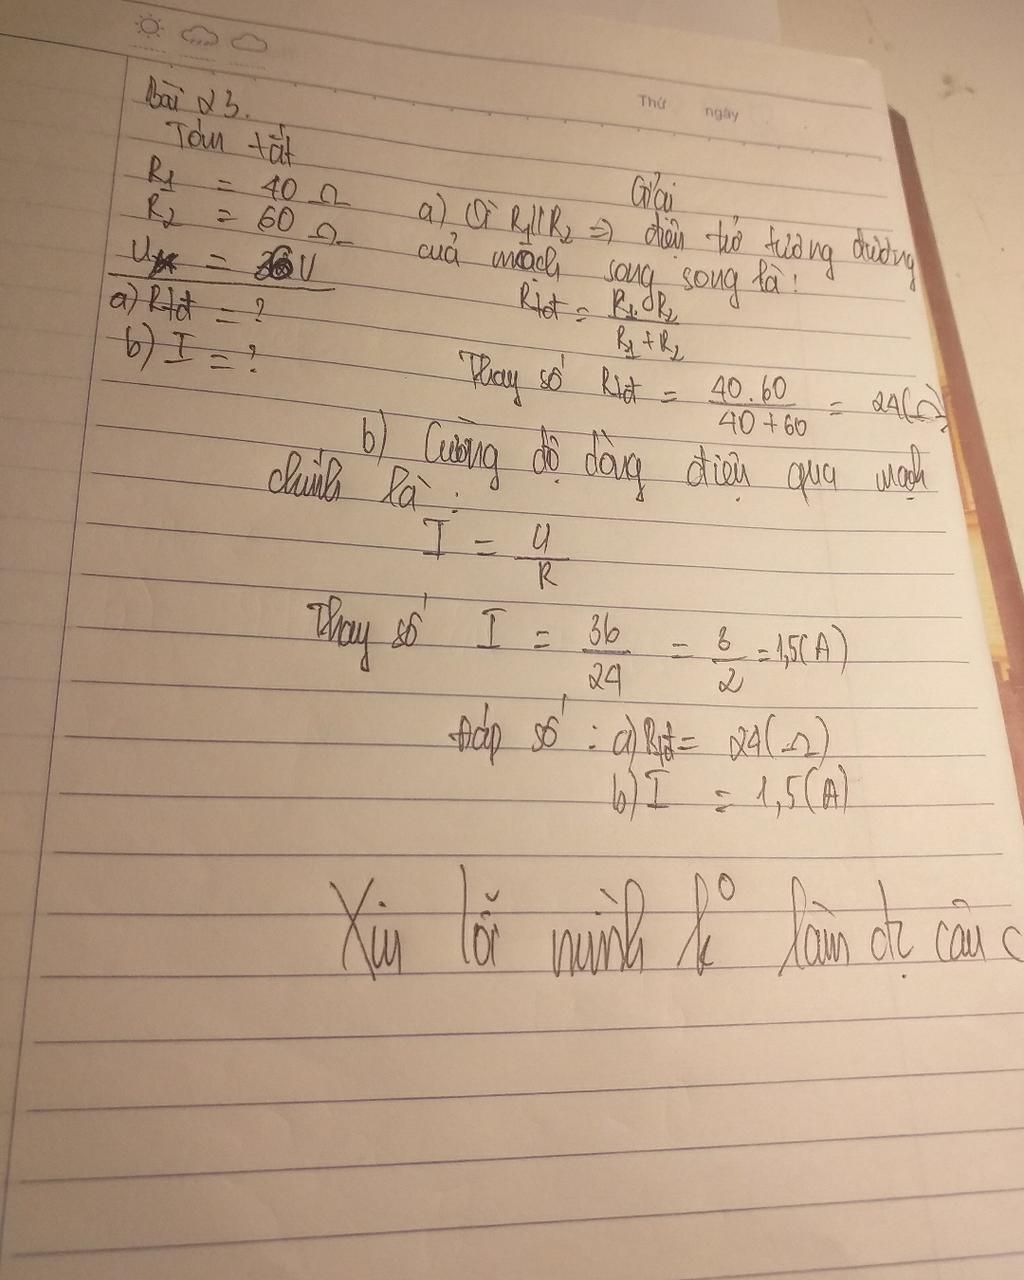 Thứ ngày
Bài 23.
Tóm tắt
R1 = 40 Ω
R2 = 60 Ω
U = 36 V
a) Rtđ = ?
b) I = ?
Giải
a) Vì R1//R2 => điện trở tương đương
của mạch song song là:
Rtđ = R1.R2 / R1+R2
Thay số Rtđ = 40.60 / 40+60 = 24(Ω)
b) Cường độ dòng điện qua mạch
chính là:
I = U / R
Thay số I = 36 / 24 = 3 / 2 = 1,5(A)
Đáp số : a) Rtđ = 24(Ω)
b) I = 1,5(A)
Xin lỗi mình k° làm đc câu c